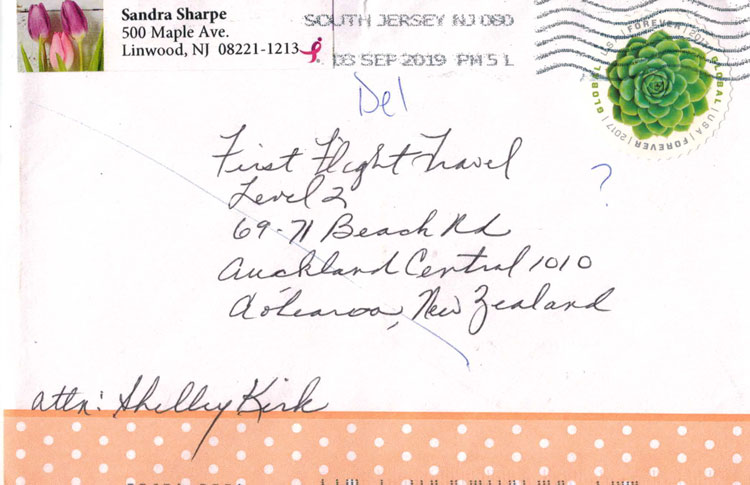 Sandra Sharpe
500 Maple Ave.
Linwood, NJ 08221-1213
SOUTH JERSEY NJ 080
03 SEP 2019 PM 5 L
GLOBAL | USA | FOREVER | 2017 | GLOBAL | USA | FOREVER | 2017
Del
First Flight Travel
?
Level 2
69-71 Beach Rd
Auckland Central 1010
Aotearoa, New Zealand
attn: Shelley Kirk